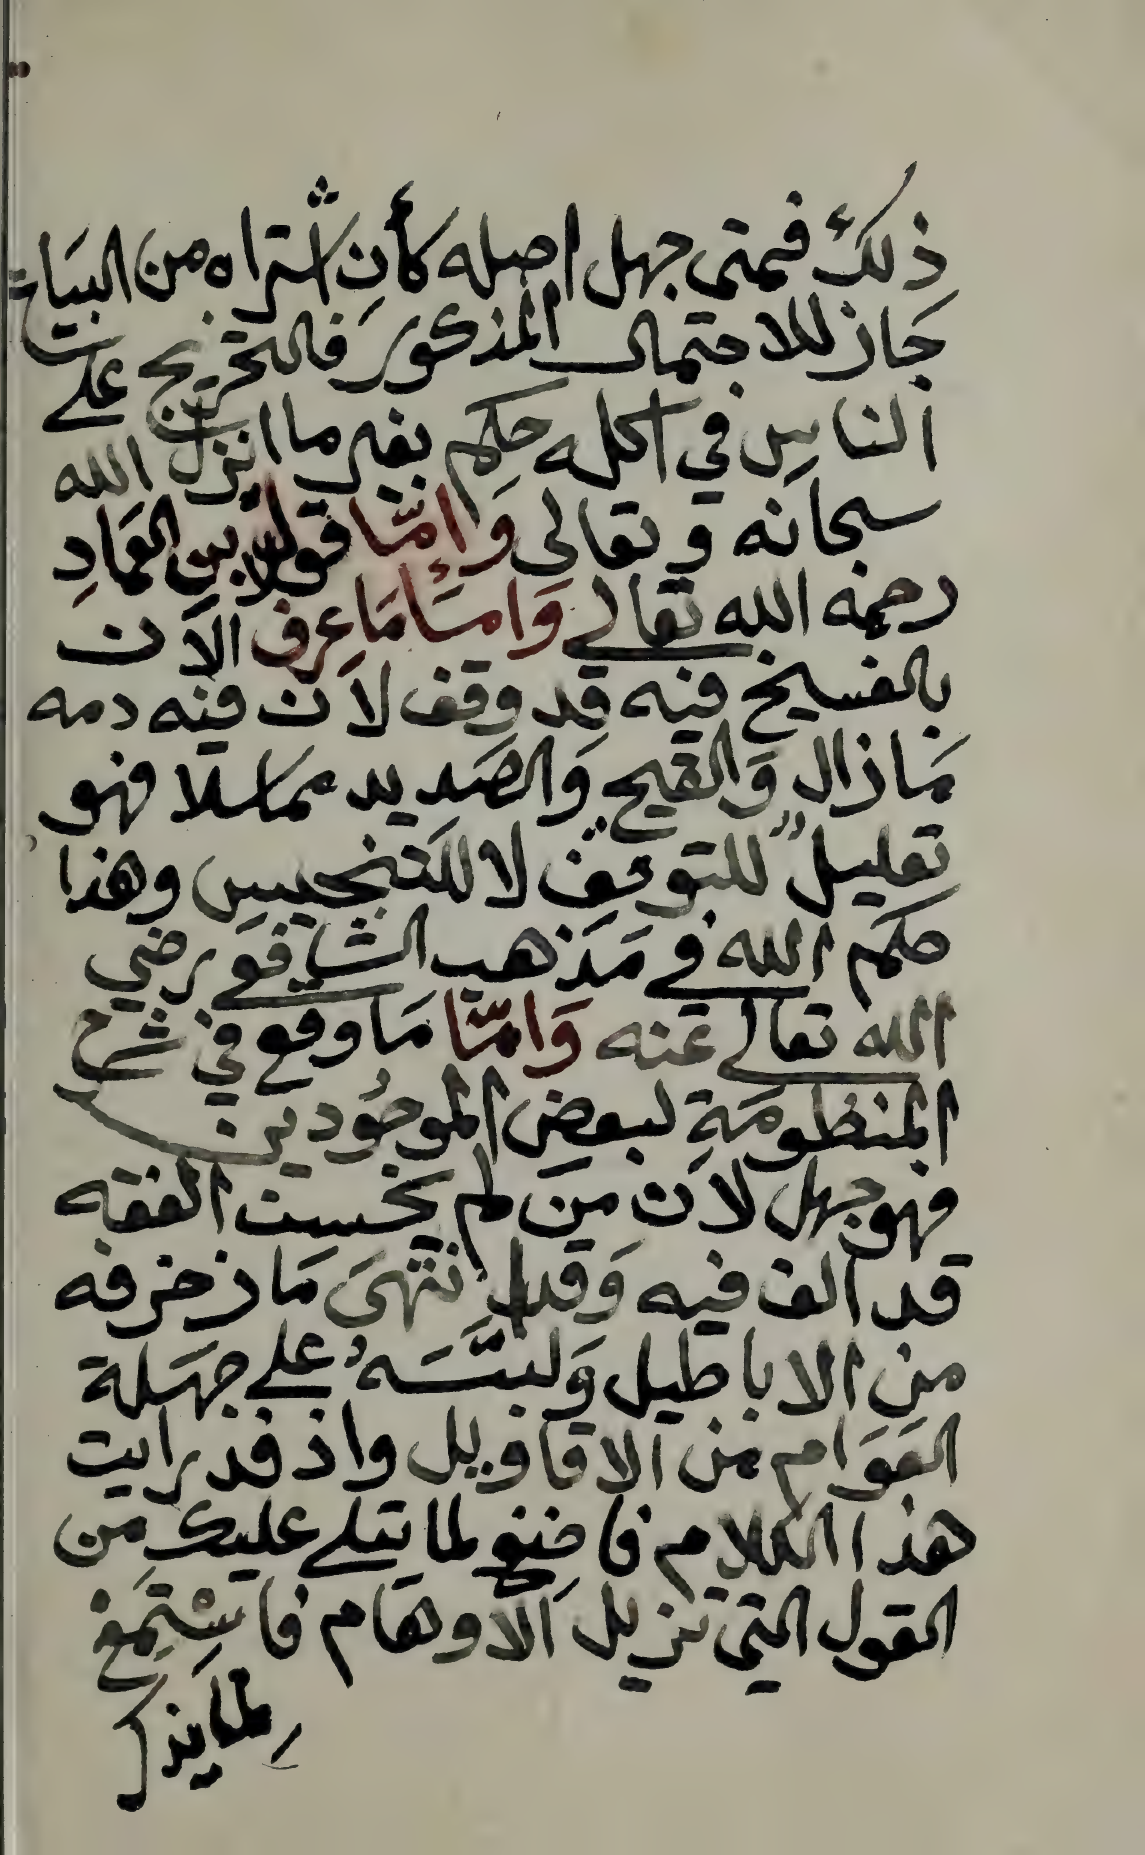 ذلك فمتى جهل اصله كأن اشتراه من البياع
جاز للاحتمال المذكور فالتحريج على
الناس في اكله حكم بغير ما انزل الله
سبحانه وتعالى وامّا قول ابن العماد
رحمه الله تعالى وامّا ما عرف الآن
بالفسيخ فيه قد وقف لان فيه دمه
ما زال والقيح والصديد مماسلا فهو
تعليل للتوقف لا للتنجيس وهذا
حكم الله في مذهب الشافعي رضي
الله تعالى عنه وامّا ما وقع في شرح
المنظومة لبعض الموجودين
فهو جهل لان من لم يحسن الفقه
قد الف فيه وقد انتهى ما زخرفه
من الاباطيل ولبّسه على جهلة
العوام من الاقاويل واذ قد رايت
هذا الكلام فاضغ لما يتلى عليك من
القول التي تزيل الاوهام فاستمع
لما يذكر